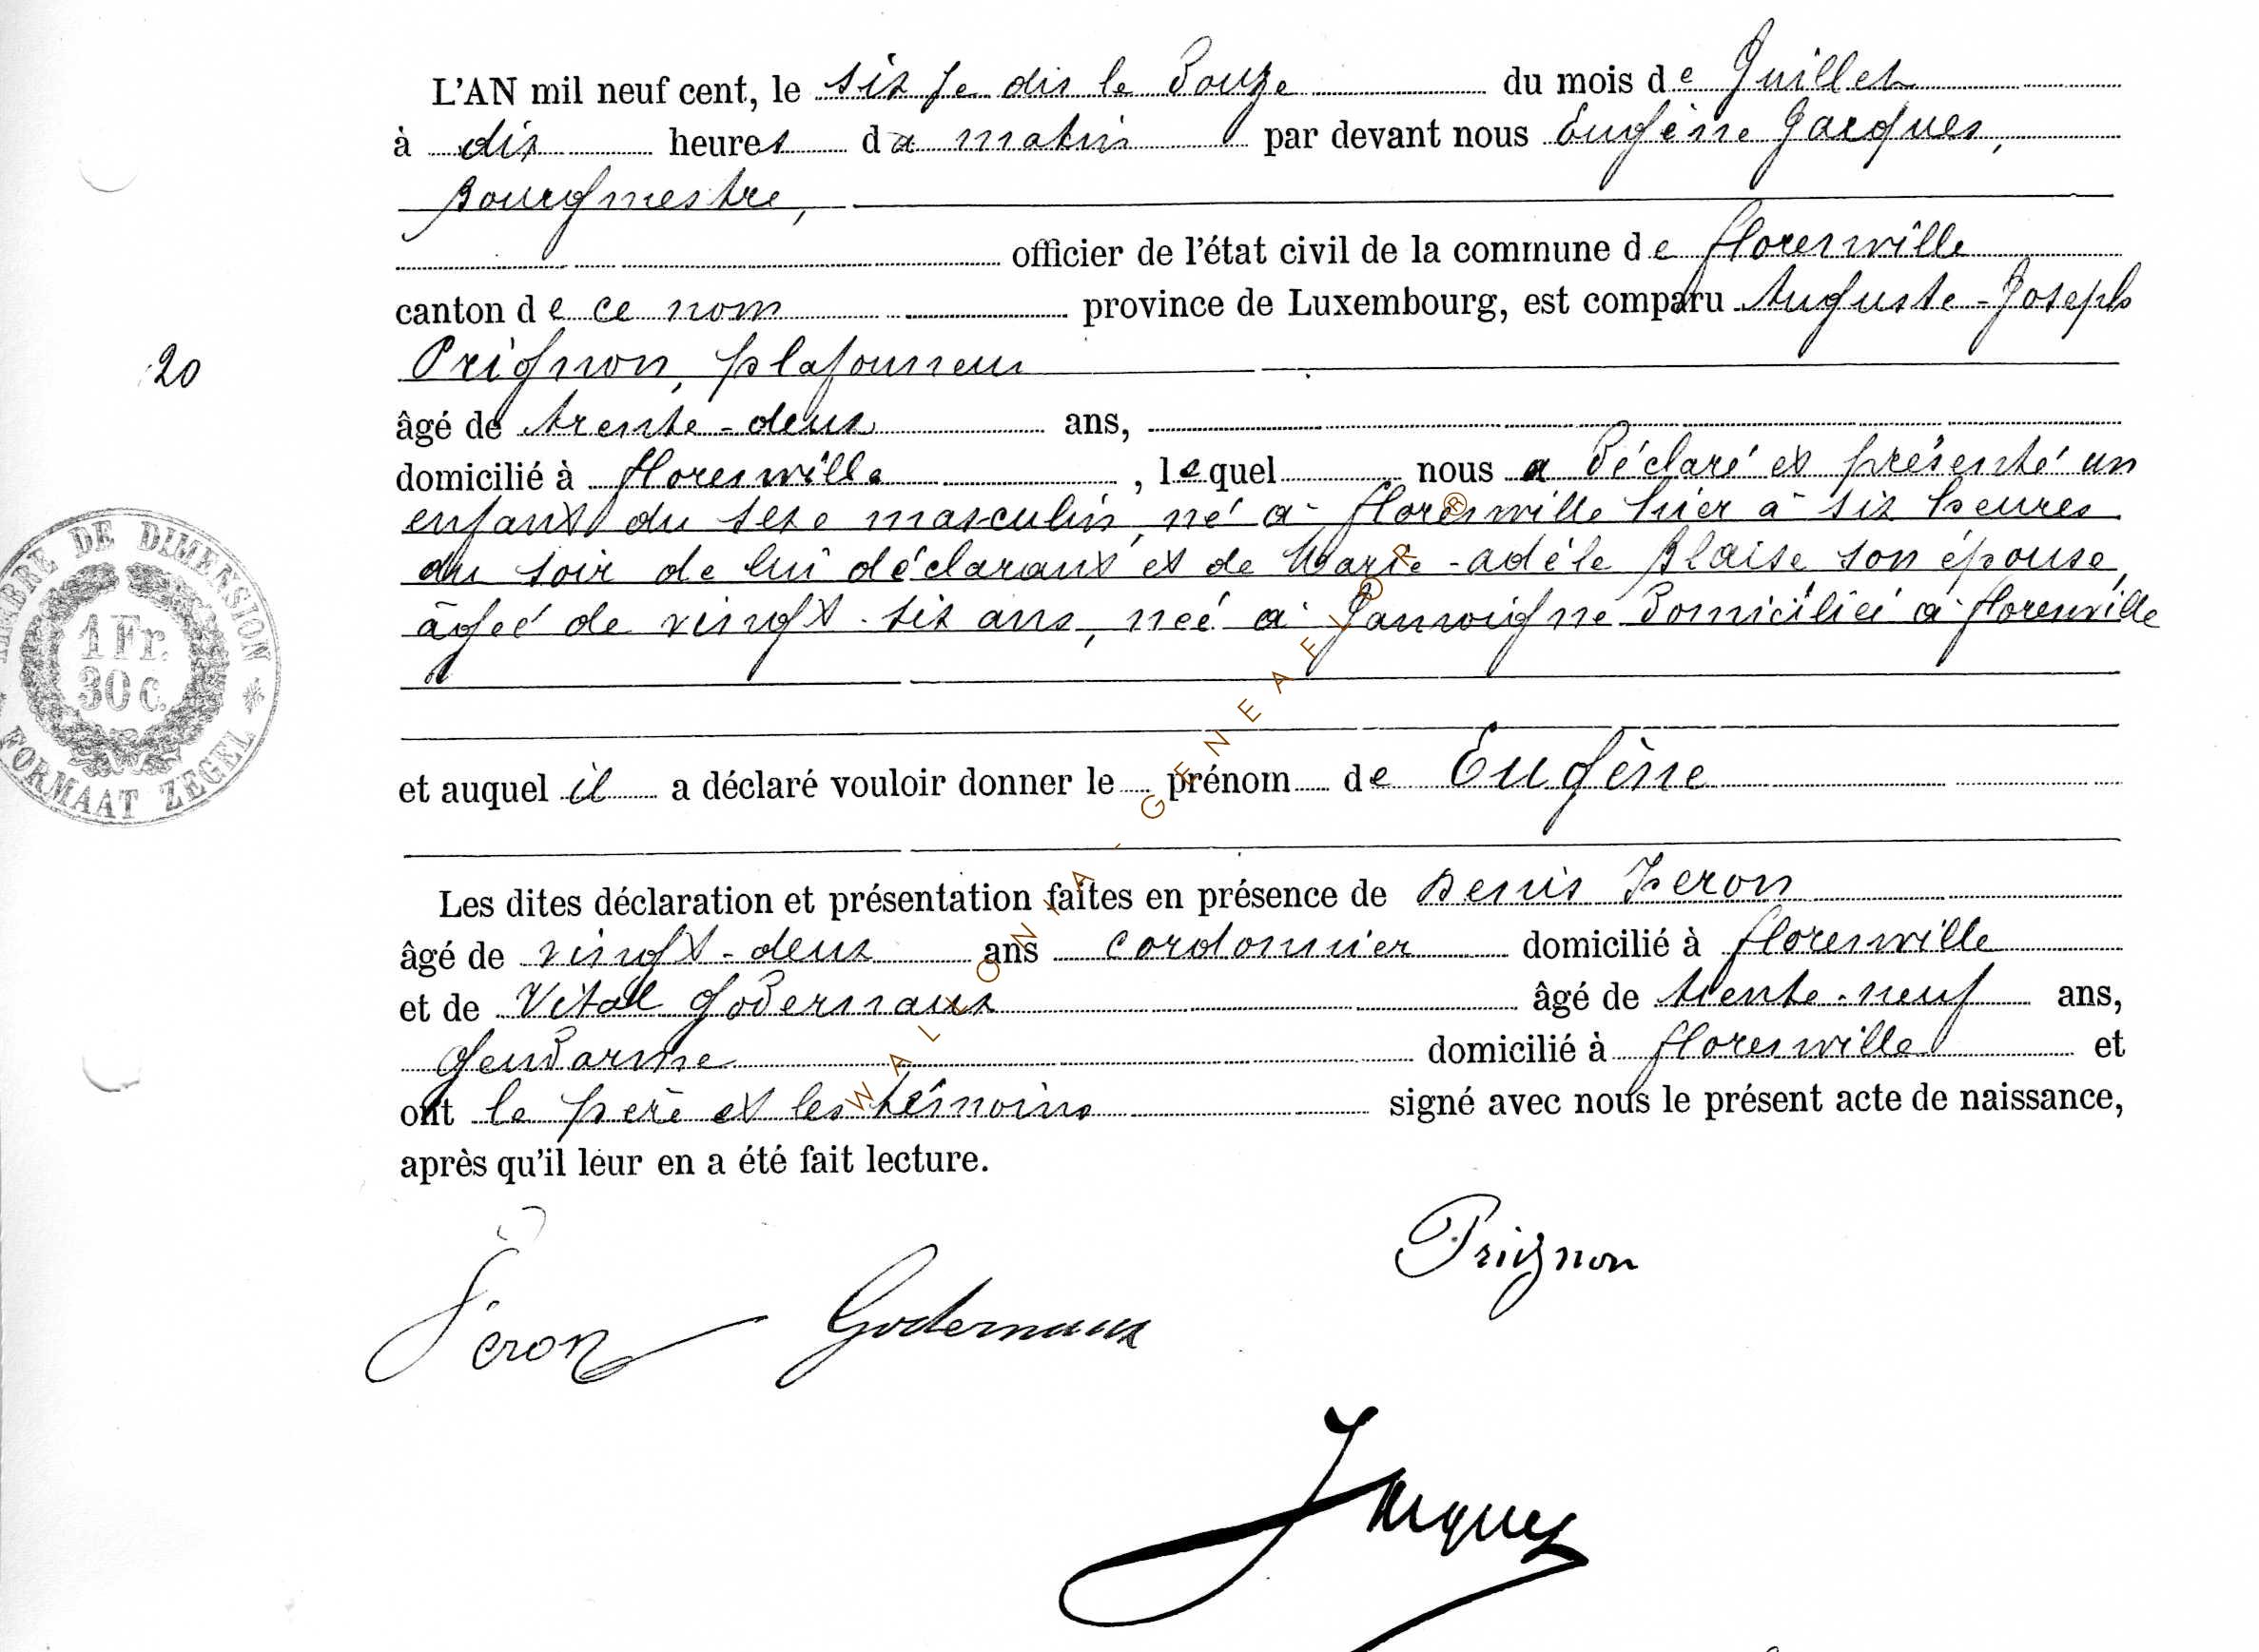 L'AN mil neuf cent, le six je dis le Douze du mois de Juillet
à dix heures du matin par devant nous Eugène Jacques,
Bourgmestre,
officier de l'état civil de la commune de florenville
canton de ce nom province de Luxembourg, est comparu Auguste-Joseph
20
Prignon, plafonneur
âgé de trente-deux ans,
domicilié à florenville, lequel nous a Déclaré et présenté un
enfant du sexe masculin, né à florenville hier à six heures
du soir de lui déclarant et de Marie-adèle Blaise son épouse,
âgée de vingt-six ans, née à Jamoigne Domiciliée à florenville
TIMBRE DE DIMENSION
1 Fr.
30 c.
FORMAAT ZEGEL
et auquel il a déclaré vouloir donner le prénom de Eugène
Les dites déclaration et présentation faites en présence de Denis Feron
âgé de vingt-deux ans cordonnier domicilié à florenville
et de Vital Godernaux âgé de trente-neuf ans,
Gendarme domicilié à florenville et
ont le père et les témoins signé avec nous le présent acte de naissance,
après qu'il leur en a été fait lecture.
Prignon
Feron Godernaux
Jacques
WALLONIA-GENEAFLOR®